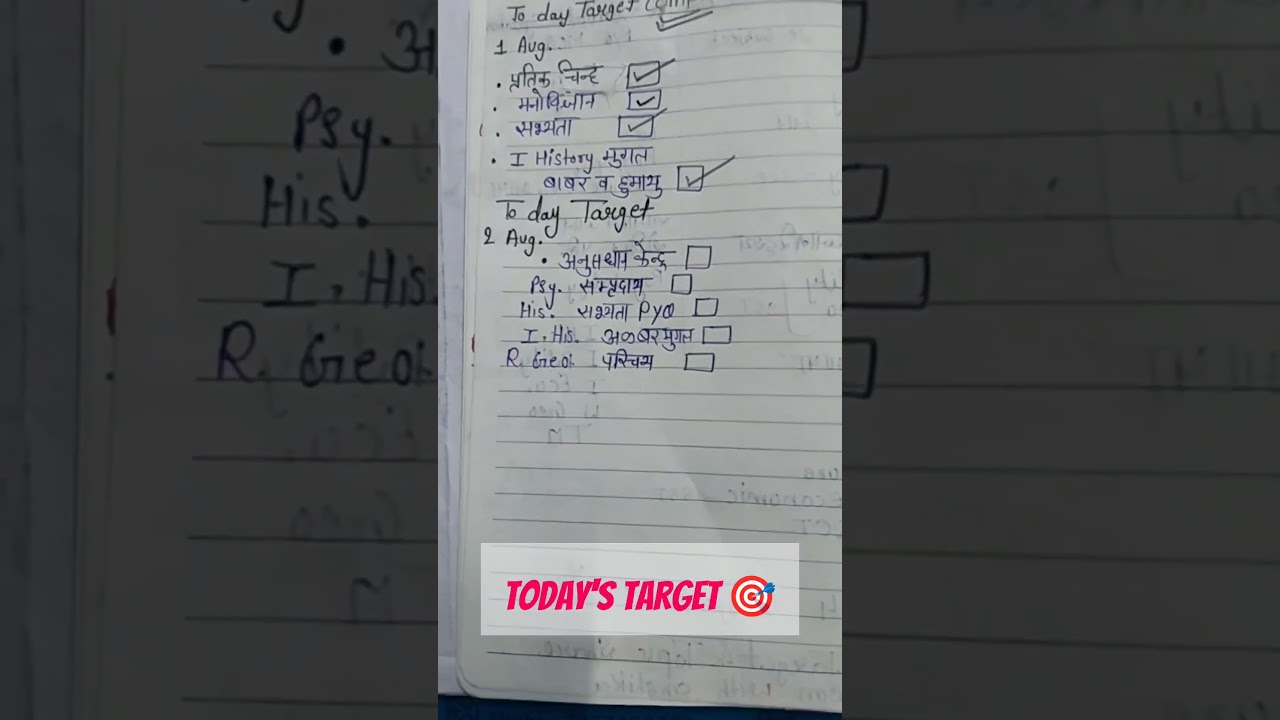 To day Target Comp
1 Aug.
• प्रतिक चिन्ह
• मनोविज्ञान
• सभ्यता
• I History मुगल
बाबर व हुमायु
To day Target
2 Aug.
• अनुसंधान केन्द्र
Psy. सम्प्रदाय
His. सभ्यता PYQ
I. His. अकबर मुगल
R. Geo. परिचय
TODAY'S TARGET 🎯